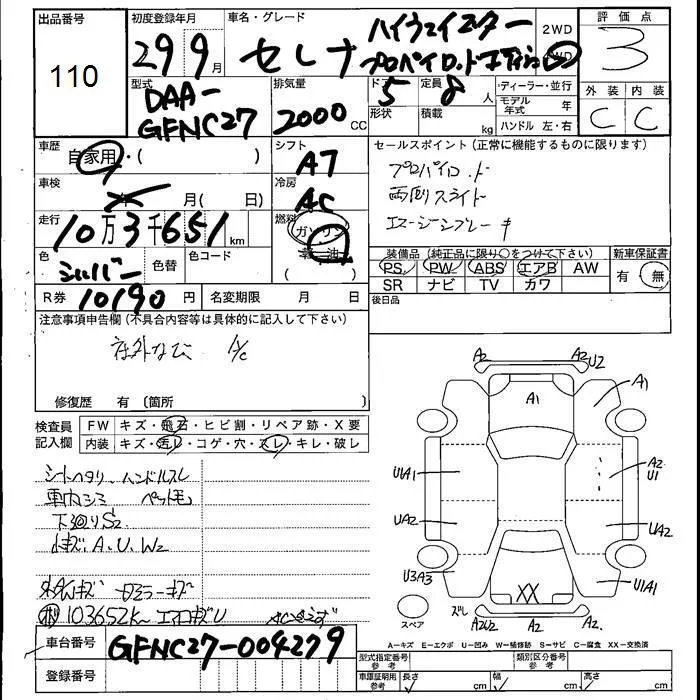 出品番号 110
初度登録年月 29 9月
車名・グレード セレナ ハイウェイスター
プロパイロットエディション
2WD
4WD
評価点 3
外装 内装
C C
型式 DAA-
GFNC27
排気量 2000 CC
ドア 5
形状
定員 8 人
積載 kg
・ディーラー・並行
モデル年式 年
ハンドル 左・右
車歴 自家用・( )
シフト AT
セールスポイント(正常に機能するものに限ります)
プロパイロット
両側スライド
エマージンブレーキ
車検 年 月( 日)
冷房 AC
走行 10万3千651km
燃料 ガソリン
軽油
( )
色 シルバー 色替 色コード
装備品(純正品に限り○をつけて下さい)
PS PW ABS エアB AW
SR ナビ TV カワ
新車保証書
有 無
R券 10190円 名変期限 月 日
後日品
注意事項申告欄(不具合内容等は具体的に記入して下さい)
社外ナビ A/C
修復歴 有(箇所 )
検査員記入欄
FW キズ・飛石・ヒビ割・リペア跡・X要
内装 キズ・汚レ・コゲ・穴・スレ・キレ・破レ
シートヘタリ ハンドルスレ
車内シミ ペット毛
下廻りS2
小キズ、A、U、W2
ミラーキズ
103652K
A2 A2 U2
A1 A1
U1A1 A2
U1
UA2 UA2
U3A3 XX U1A1
スペア
A2U2 A2 A2
A-キズ E-エクボ U-凹み W-補修跡 S-サビ C-腐食 XX-交換済
車台番号 GFNC27-004279
登録番号
型式指定番号 参考
類別区分番号 参考
車庫証明用 参考
長さ cm 幅 cm 高さ cm